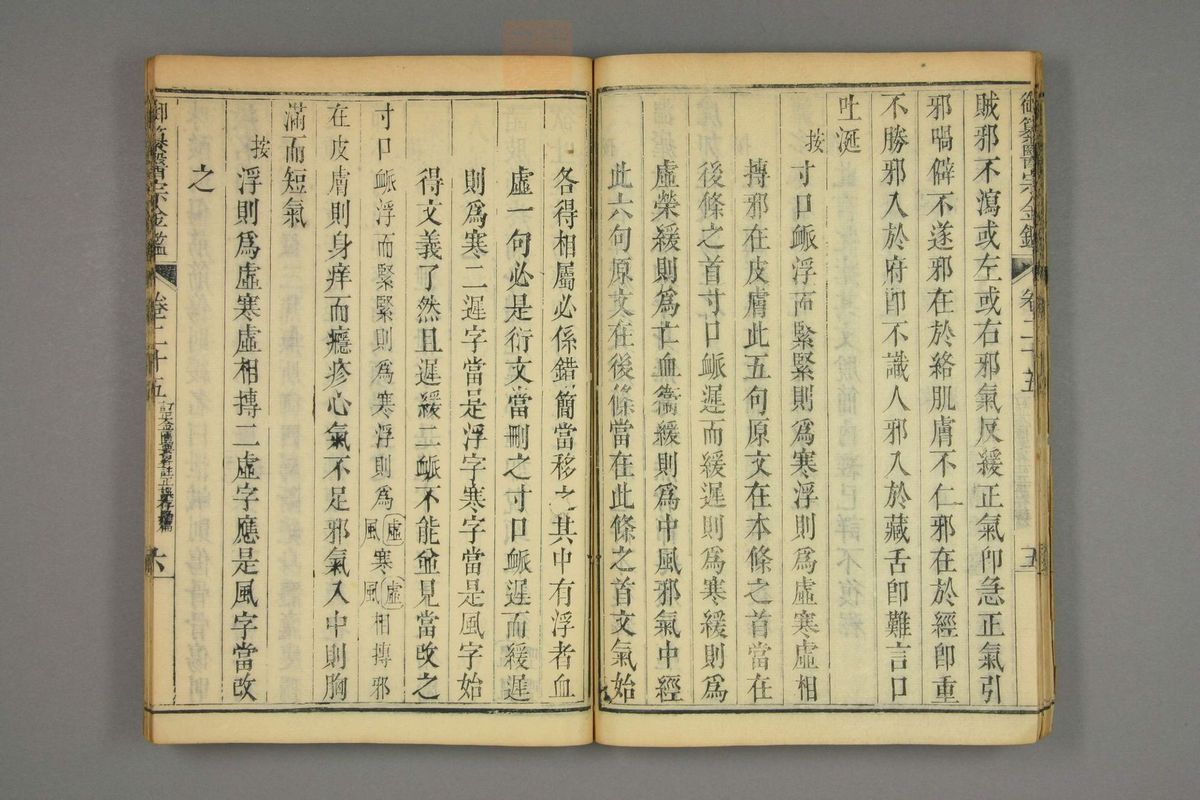 御纂醫宗金鑑 卷二十五 五
賊邪不瀉或左或右邪氣反緩正氣卽急正氣引
邪喎僻不遂邪在於絡肌膚不仁邪在於經卽重
不勝邪入於府卽不識人邪入於藏舌卽難言口
吐涎
按寸口脈浮而緊緊則爲寒浮則爲虛寒虛相
搏邪在皮膚此五句原文在本條之首當在
後條之首寸口脈遲而緩遲則爲寒緩則爲
虛榮緩則爲亡血衞緩則爲中風邪氣中經
此六句原文在後條當在此條之首文氣始
各得相屬必係錯簡當移之其中有浮者血
虛一句必是衍文當刪之寸口脈遲而緩遲
則爲寒二遲字當是浮字寒字當是風字始
得文義了然且遲緩二脈不能並見當改之
寸口脈浮而緊緊則爲寒浮則爲虛風寒虛風相摶邪
在皮膚則身痒而癮疹心氣不足邪氣入中則胸
滿而短氣
按浮則爲虛寒虛相摶二虛字應是風字當改
之
御纂醫宗金鑑 卷二十五 訂正金匱要畧註正誤存疑篇 六